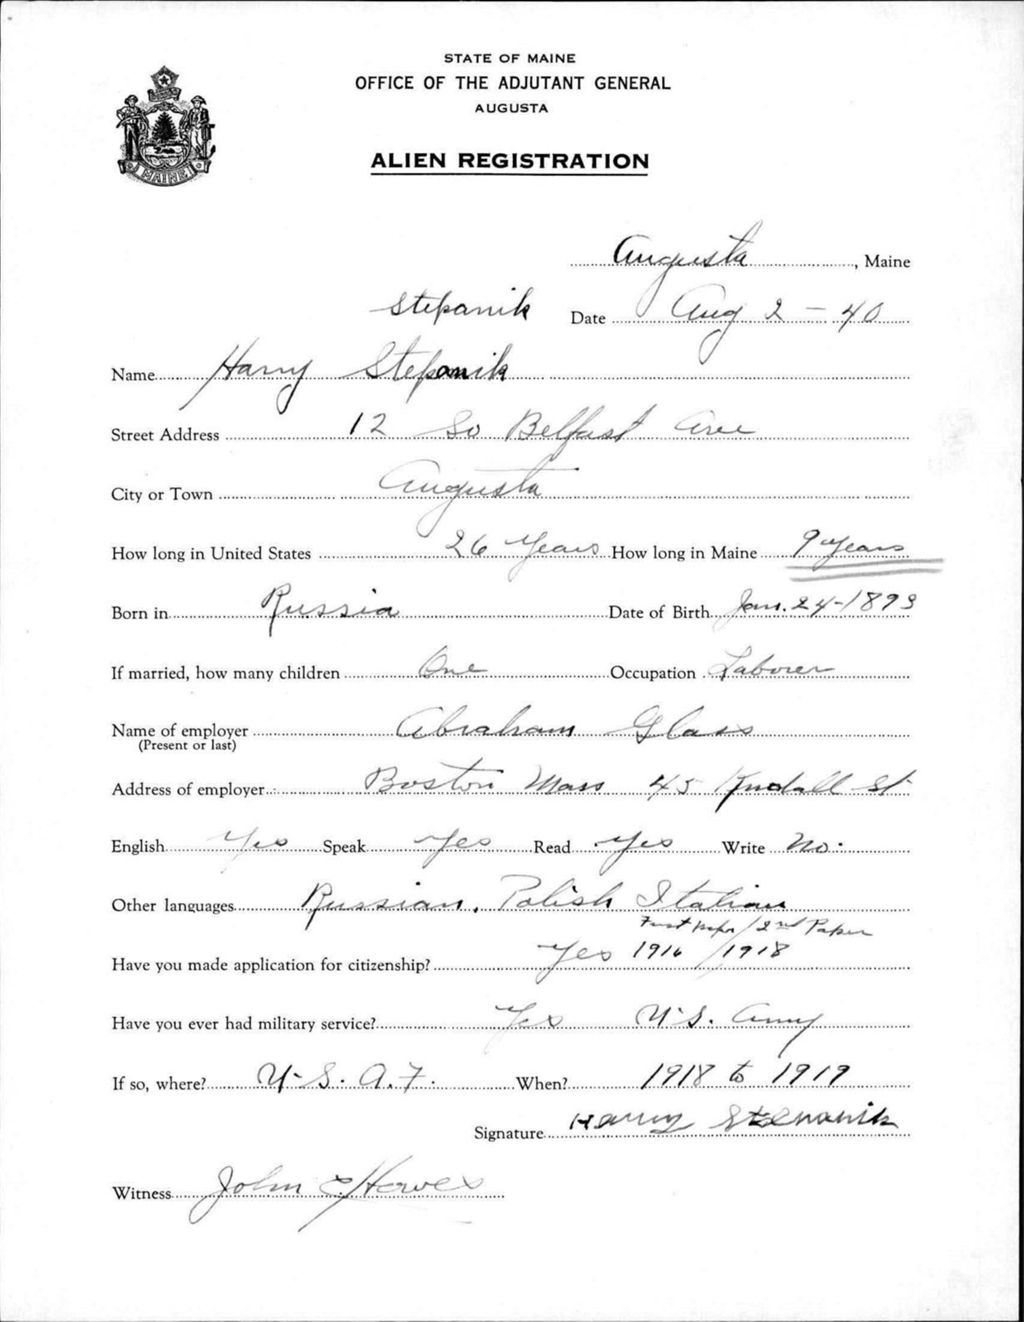 STATE OF MAINE
OFFICE OF THE ADJUTANT GENERAL
AUGUSTA
ALIEN REGISTRATION
MAINE
Augusta, Maine
Stepanik
Date Aug 2 - 40
Name Harry Stepanik
Street Address 12 So Belfast Ave
City or Town Augusta
How long in United States 26 Years How long in Maine 9 Years
Born in Russia Date of Birth Jan. 24-1893
If married, how many children One Occupation Laborer
Name of employer Abraham Glass
(Present or last)
Address of employer Boston Mass 45 Kndall St
English Yes Speak Yes Read Yes Write No.
Other languages Russian. Polish Italian
First paper / 2nd Paper
Have you made application for citizenship? Yes 1916 / 1918
Have you ever had military service? Yes U.S. Army
If so, where? U-S. A.F. When? 1918 to 1919
Signature Harry Stepanik
Witness John E Howes